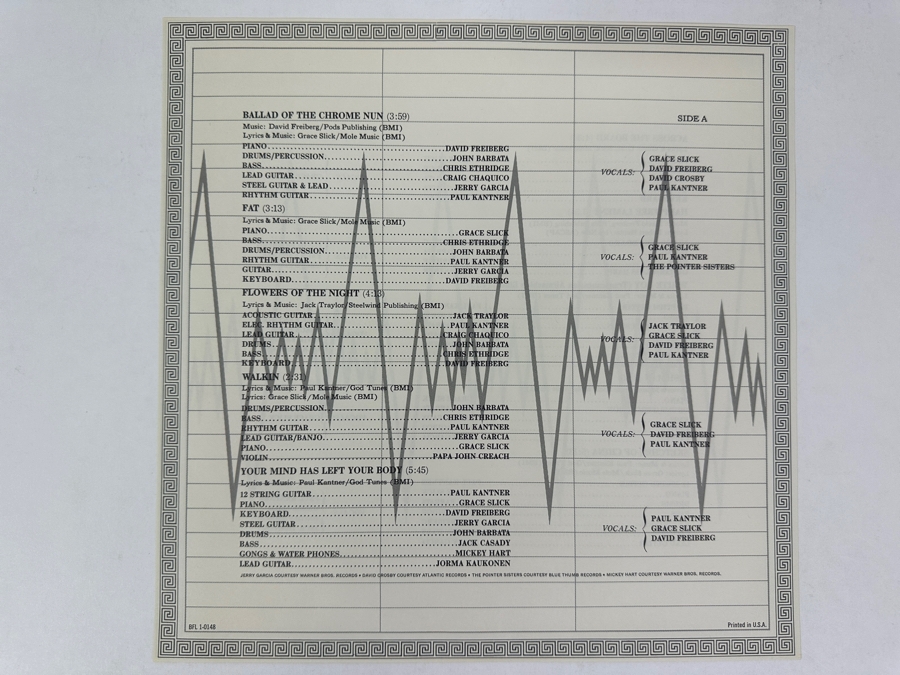 BALLAD OF THE CHROME NUN (3:59)
SIDE A
Music: David Freiberg/Pods Publishing (BMI)
Lyrics & Music: Grace Slick/Mole Music (BMI)
PIANO DAVID FREIBERG
DRUMS/PERCUSSION JOHN BARBATA
BASS CHRIS ETHRIDGE
LEAD GUITAR CRAIG CHAQUICO
STEEL GUITAR & LEAD JERRY GARCIA
RHYTHM GUITAR PAUL KANTNER
VOCALS: GRACE SLICK
DAVID FREIBERG
DAVID CROSBY
PAUL KANTNER
FAT (3:13)
Lyrics & Music: Grace Slick/Mole Music (BMI)
PIANO GRACE SLICK
BASS CHRIS ETHRIDGE
DRUMS/PERCUSSION JOHN BARBATA
RHYTHM GUITAR PAUL KANTNER
GUITAR JERRY GARCIA
KEYBOARD DAVID FREIBERG
VOCALS: GRACE SLICK
PAUL KANTNER
THE POINTER SISTERS
FLOWERS OF THE NIGHT (4:13)
Lyrics & Music: Jack Traylor/Steelwind Publishing (BMI)
ACOUSTIC GUITAR JACK TRAYLOR
ELEC. RHYTHM GUITAR PAUL KANTNER
LEAD GUITAR CRAIG CHAQUICO
DRUMS JOHN BARBATA
BASS CHRIS ETHRIDGE
KEYBOARD DAVID FREIBERG
VOCALS: JACK TRAYLOR
GRACE SLICK
DAVID FREIBERG
PAUL KANTNER
WALKIN (2:31)
Lyrics & Music: Paul Kantner/God Tunes (BMI)
Lyrics: Grace Slick/Mole Music (BMI)
DRUMS/PERCUSSION JOHN BARBATA
BASS CHRIS ETHRIDGE
RHYTHM GUITAR PAUL KANTNER
LEAD GUITAR/BANJO JERRY GARCIA
PIANO GRACE SLICK
VIOLIN PAPA JOHN CREACH
VOCALS: GRACE SLICK
DAVID FREIBERG
PAUL KANTNER
YOUR MIND HAS LEFT YOUR BODY (5:45)
Lyrics & Music: Paul Kantner/God Tunes (BMI)
12 STRING GUITAR PAUL KANTNER
PIANO GRACE SLICK
KEYBOARD DAVID FREIBERG
STEEL GUITAR JERRY GARCIA
DRUMS JOHN BARBATA
BASS JACK CASADY
GONGS & WATER PHONES MICKEY HART
LEAD GUITAR JORMA KAUKONEN
VOCALS: PAUL KANTNER
GRACE SLICK
DAVID FREIBERG
JERRY GARCIA COURTESY WARNER BROS. RECORDS • DAVID CROSBY COURTESY ATLANTIC RECORDS • THE POINTER SISTERS COURTESY BLUE THUMB RECORDS • MICKEY HART COURTESY WARNER BROS. RECORDS.
BFL 1-0148
Printed in U.S.A.